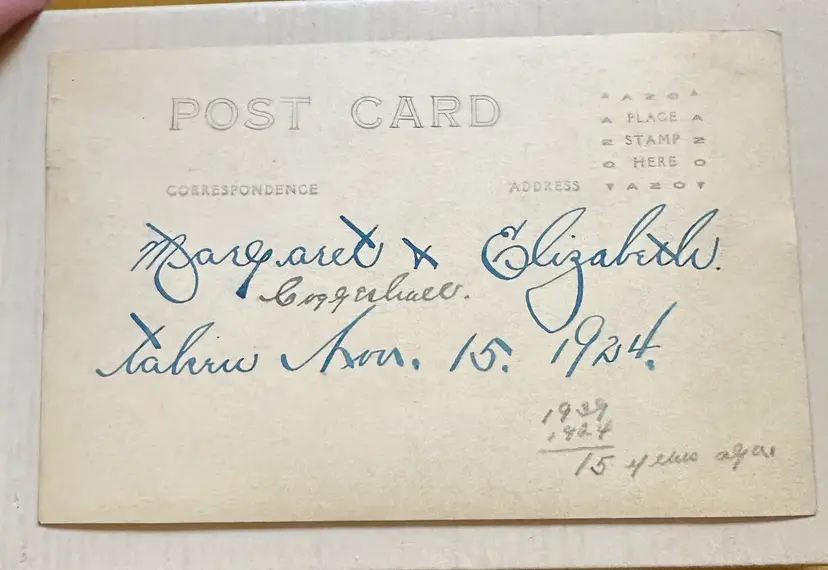 POST CARD
AZO
A PLACE A
Z STAMP Z
O HERE O
AZO
CORRESPONDENCE
ADDRESS
Margaret & Elizabeth.
Coggeshall.
taken Nov. 15. 1924.
1939
1924
15 years ago